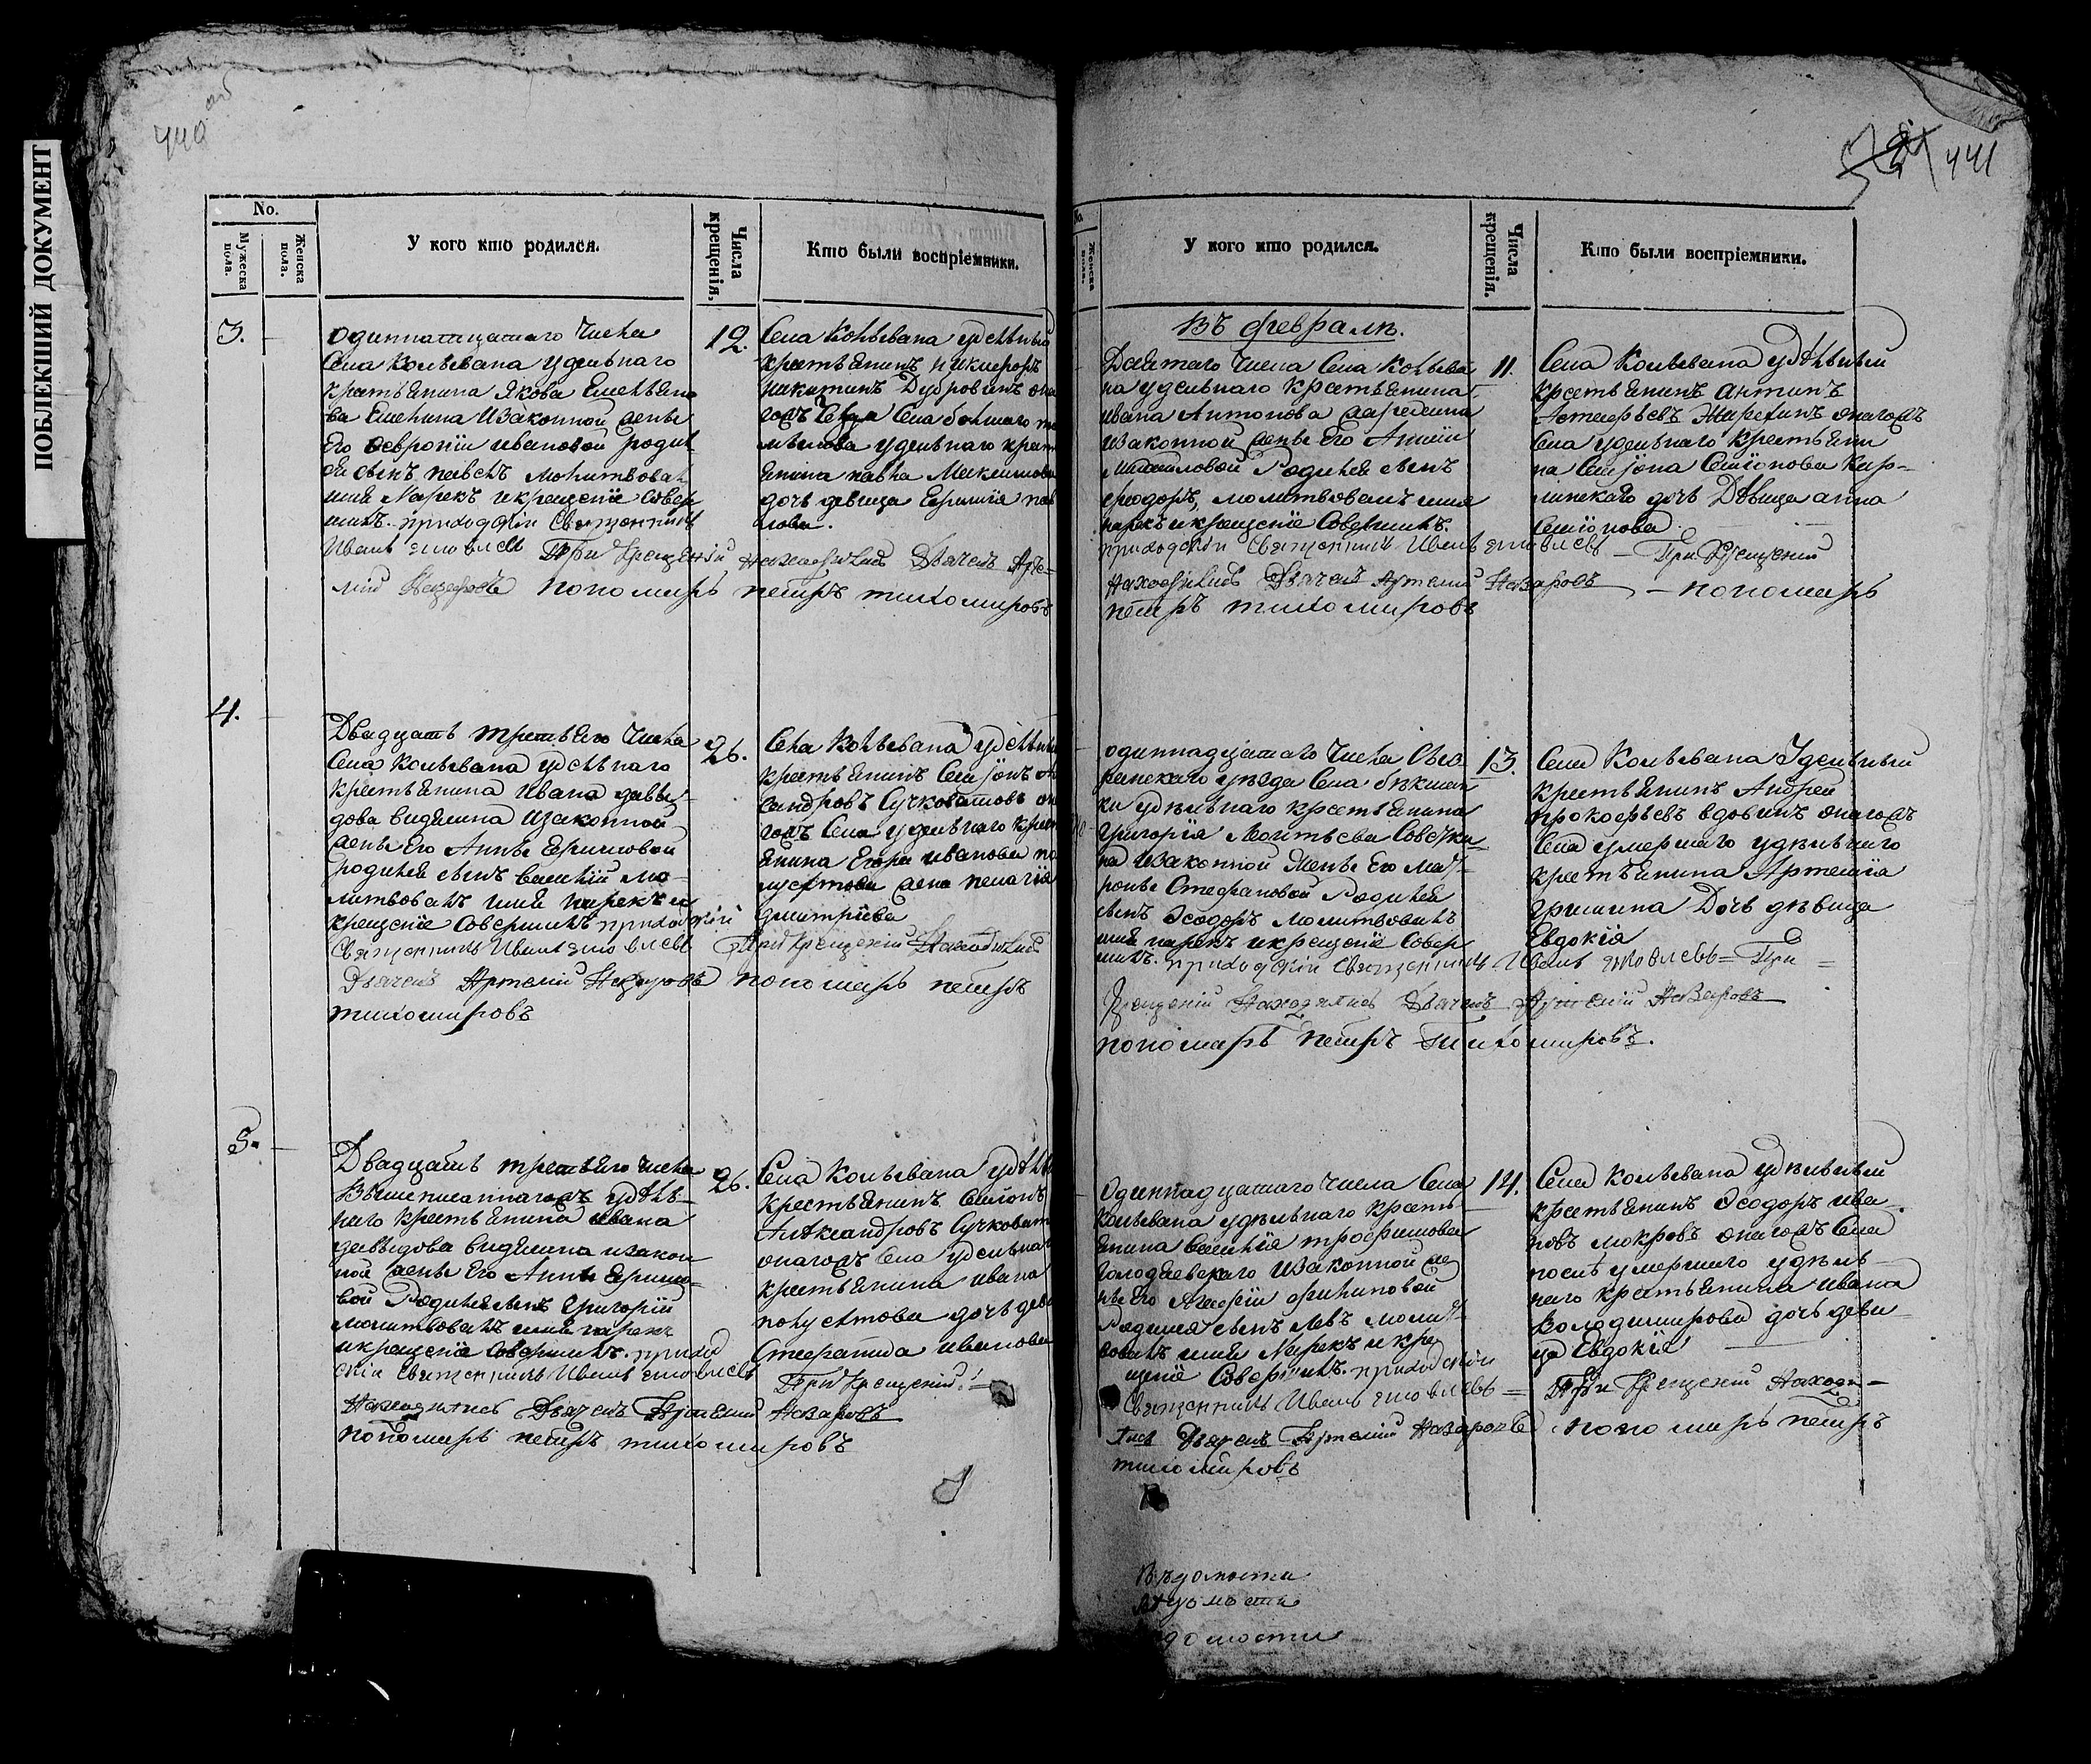 ПОБЛЕКШИЙ ДОКУМЕНТ
440 об
No.
Мужеска пола.
Женска пола.
У кого кто родился.
Числа крещенія,
Кто были воспріемники.
3.
одиннатцатаго числа
Села Колывана удельнаго
крестьянина Якова Емельяно
ва Емелина изаконной жены
Его Февроніи ивановой родил
ся сынъ павелъ молитвовал
имя Нарекъ икрещеніе Совер
шилъ. приходскіи Священникъ
Иванъ яковлевъ При Крещеніи находились Дьячекъ Арте=
мій Назаровъ пономарь петръ тихомировъ
12.
Села Колывана удельныи
крестьянинъ никифоръ
никитинъ Дубровинъ она
гожъ
удельнаго крест
янина павла Максимова
дочь девица Ефимія пав
лова.
4.
Двадцать третьяго числа
Села Колывана удельнаго
крестьянина ивана давы
дова видяпина изаконной
жены Его Анны Ефимовой
родился сынъ василій мо-
литвовалъ имя нарекъ и
крещеніе совершилъ приходскій
Священникъ Иванъ яковлевъ При Крещеніи Находились
Дьячекъ Артемій Назаровъ пономарь петръ
тихомировъ
26.
Села Колывана удельный
крестьянинъ Семіонъ
сандровъ Сучковатовъ
гожъ Села удельнаго крест
янина Егора иванова по
лустова жена пелагія
дмитріева
5.
Двадцать третьяго числа
Вышеписаннагожъ удель-
наго крестьянина ивана
давыдова видяпина изакон
ной жены Его Анны Ефимо=
вой Родился сынъ Григорій
молитвовалъ имя нарекъ
икрещеніе совершилъ. приход
скіи Священникъ Иванъ яковлевъ При Крещеніи
Находились Дьячекъ Артемій Назаровъ
пономарь петръ тихомировъ
26.
Села Колывана удель
крестьянинъ Семіонъ
Александровъ Сучковат
онагожъ Села удельна
крестьянина ивана
полустова дочь деви
Стефанида иванова
441
No
Женска пола.
У кого кто родился.
Числа крещенія.
Кто были воспріемники.
Въ февралѣ.
Девятаго числа Села Колыва
на удельнаго крестьянина
ивана Антонова
изаконной жены Его
Михаиловой Родился сынъ
феодоръ, молитвовалъ имя
нарекъ и крещеніе Совершилъ.
приходскіи Священникъ Иванъ яковлевъ – При Крещеніи
находились Дьячекъ Артемій Назаровъ – пономарь
петръ тихомировъ
11.
Села Колывана удѣльный
крестьянинъ антипъ
онагожъ
Села удельнаго крестьяни
на Семіона Семіонова Кир-
линскаго дочь Дѣвица анна
Семіонова
одиннадцатаго числа
уѣзда Села
ки удѣльнаго крестьянина
григорія
на изаконной жены Его Мат-
роны Стефановой Родился
сынъ Ѳеодоръ молитвовалъ
имя нарекъ икрещеніе Совер
шилъ. приходскіи Священникъ Иванъ яковлевъ = При =
Крещеніи Находились Дьячекъ Артемій Назаровъ
пономарь петръ тихомировъ.
13.
Села Колывана Удельный
крестьянинъ Андрей
прокофьевъ вдовинъ онагожъ
Села умершаго удѣльнаго
крестьянина Артемія
гришина Дочь дѣвица
Евдокія
Одиннадцатаго числа Села
Колывана удѣльнаго крестъ
янина василія трофимова
изаконной же
ны Его филиповой
Родился сынъ левъ молит-
вовалъ имя Нарекъ и кре
щеніе Совершилъ. приходскіи
Священникъ Иванъ яковлевъ = При Крещеніи Находи=
лись Дьячекъ Артемій Назаровъ пономарь петръ
тихомировъ
14.
Села Колывана удѣльный
крестьянинъ Ѳеодоръ ива-
новъ мокровъ онагожъ Села
послѣ умершаго удѣль-
наго крестьянина ивана
володимирова дочь деви-
ца Евдокія
Вѣдомости
Ведомости
домости